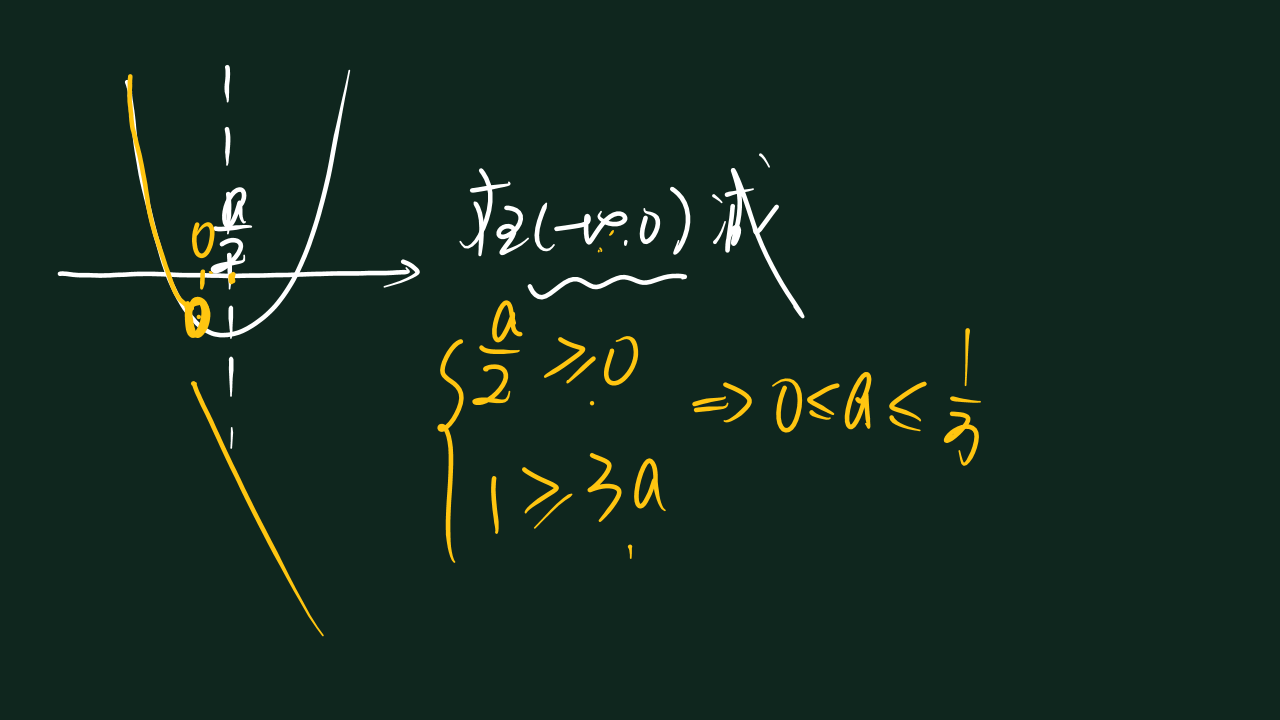 0 a/2
在(-∞,0)减
{ a/2 ≥ 0
1 ≥ 3a
⇒ 0 ≤ a ≤ 1/3